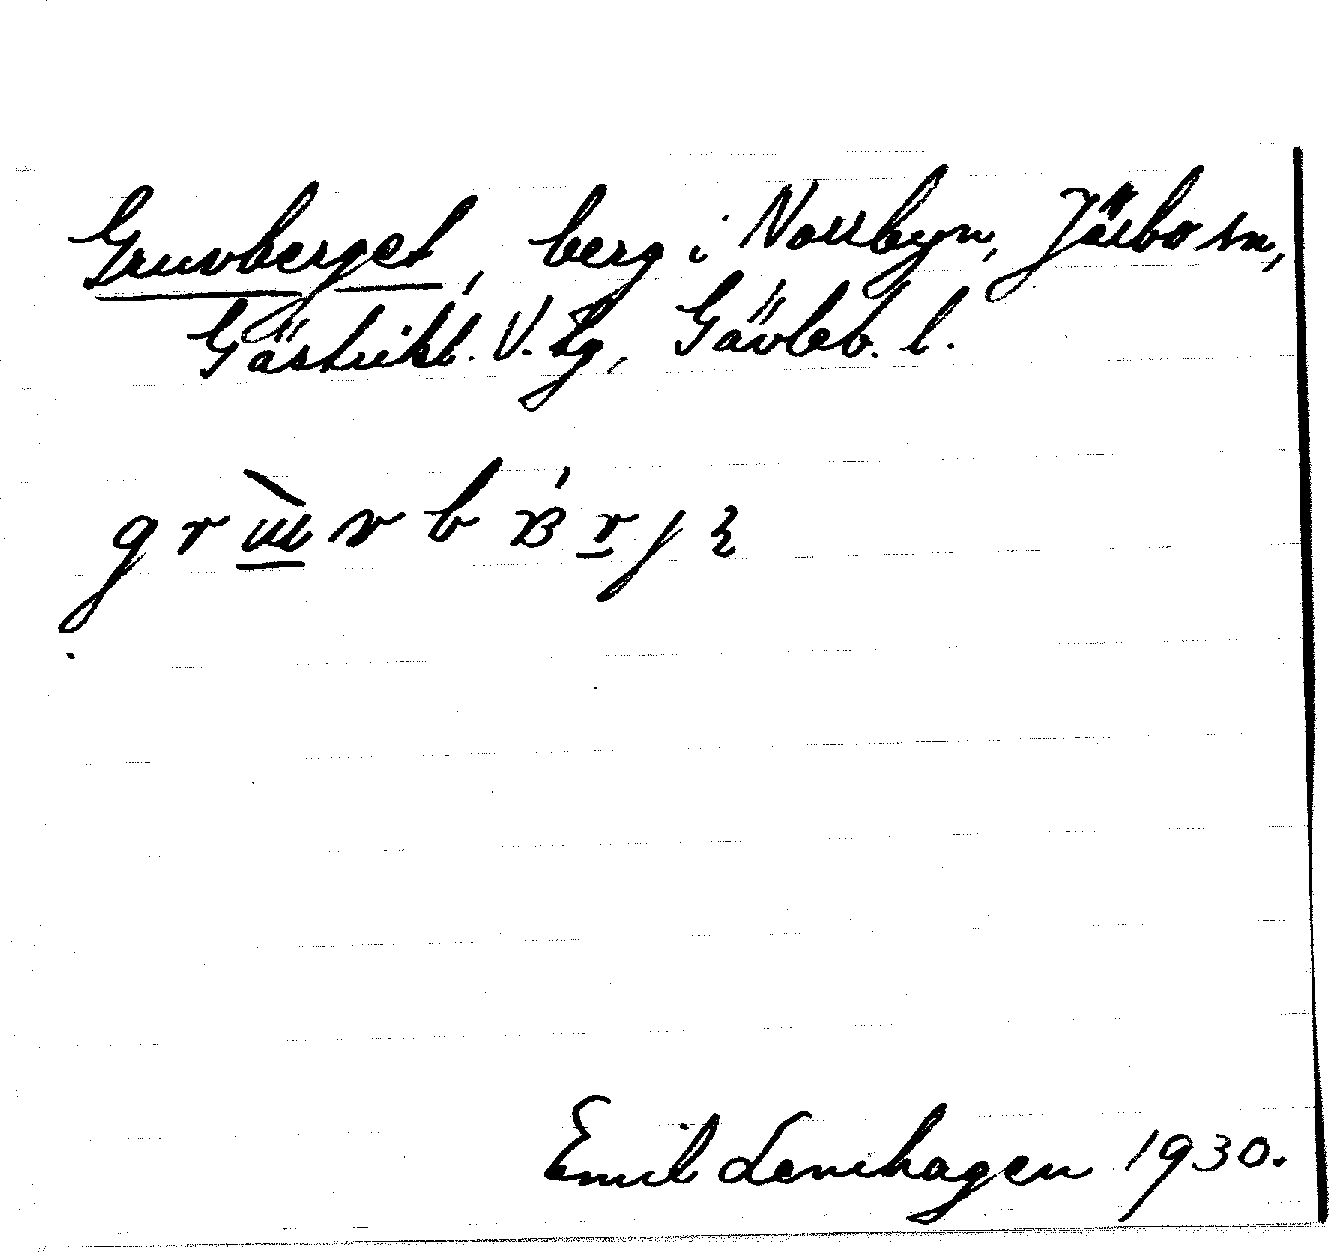 Gruvberget, berg i Norrbyn, Järbo sn,
Gästrikl. V. tg, Gävleb. l.
Emil Lenhagen 1930.